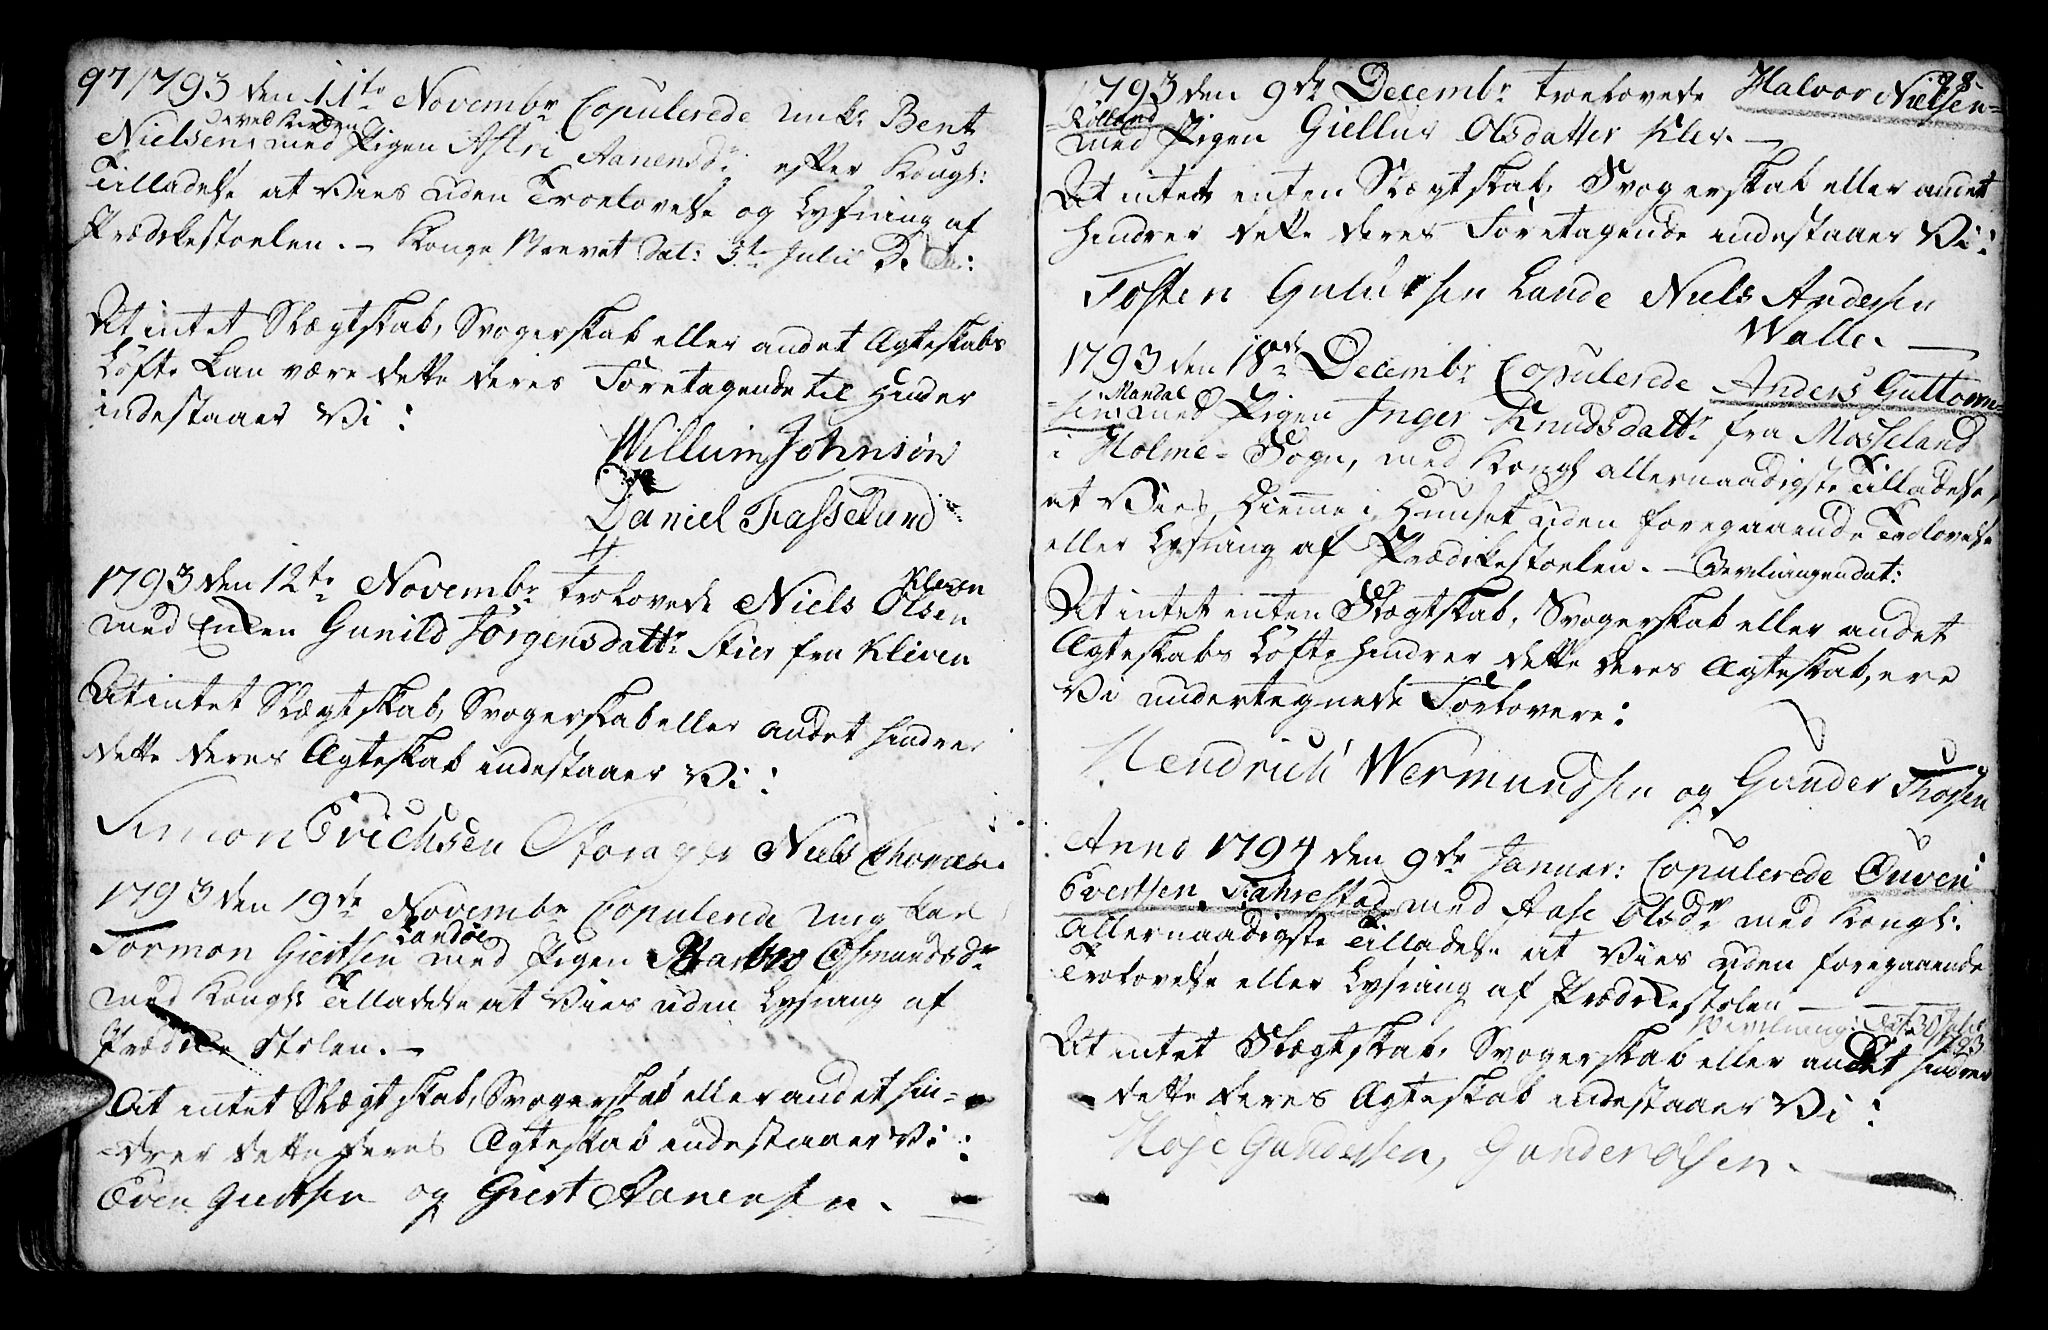 97
1793 den 11te Novembr Copulerede Enke Bent
ved Kirken
Nielsen, med Pigen Astri Aanensdr efter Kongl:
Tilladelse at Vies uden Troelovelse og Lysning af
Prædikestoelen. – Konge Brevet Dat: 3te Julii
At intet Slægtskab, Svogerskab eller andet Ægteskabs
Løfte kan være dette deres Foretagende til Hinder
indestaaer Vi:
Willum Johnsøn
Daniel Fasselund
1793 den 12te Novembr trolovede Niels Olsen
Kleven
med Enken Gunild Jørgensdattr Stier fra Kleven
At intet Slægtskab, Svogerskab eller andet hindrer
dette deres Ægteskab indestaaer Vi:
Simon Erichsen Storager Niels Thomæs.
1793 den 19de Novembr Copulerede ung Karl
Landøe
Tormon Giertsen med Pigen Osmundsdr
med Kongl: Tilladelse at Vies uden Lysning af
Prædike Stolen. –
At intet Slægtskab, Svogerskab eller andet hin-
drer dette deres Ægteskab indestaaer Vi:
Even Giertsen og Giert Aanensen.
98
1793 den 9de Decembr troelovede Halvor Nielsen
Rölland
med Pigen Giellur Olsdatter Klev. –
At intet enten Slægtskab, Svogerskab eller andet
hindrer dette deres Foretagende indestaaer Vi:
Tosten Guldersen Lande Niels Andersen
Walle. –
1793 den 18de Decembr Copulerede Anders Guttorm-
Mandal
sen med Pigen Inger Knudsdattr fra Mosseland
i Holme-Sogn, med Kongl allernaadigste Tilladelse,
at Vies hiemme i Huuset uden foregaaende Trolovelse
eller Lysning af Prædikestoelen. – Bevilningen dat:
At intet enten Slægtskab, Svogerskab eller andet
Ægteskabs Løfte hindrer dette deres Ægteskab, ere
Vi undertegnede Forlovere:
Hendrich Wermundsen og Gunder Thorsen
Anno 1794 den 9de Januar: Copulerede Ouven
Evertsen Fahrestad med Aase Olsdr med Kongl:
Allernaadigste Tilladelse at Vies uden foregaaende
Trolovelse eller Lysning af Prædikestolen –
Bevilning: Dat: Julii 1793
At intet Slægtskab, Svogerskab eller andet hindrer
dette deres Ægteskab indestaaer Vi:
Gundersen, Gunder Olsen.